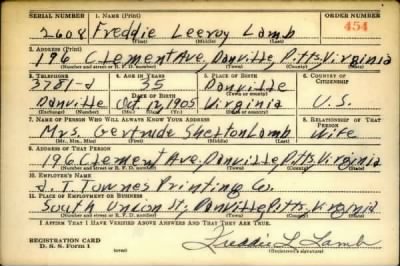 SERIAL NUMBER 1. NAME (Print) ORDER NUMBER
2608 Freddie Leeroy Lamb 454
(First) (Middle) (Last)
2. ADDRESS (Print)
196 Clement Ave, Danville, Pitts, Virginia
(Number and street or R. F. D. number) (Town) (County) (State)
3. TELEPHONE 4. AGE IN YEARS 5. PLACE OF BIRTH 6. COUNTRY OF CITIZENSHIP
3781-J 35 Danville
DATE OF BIRTH (Town or county)
Danville Oct, 12, 1905 Virginia U. S.
(Exchange) (Mo.) (Day) (Yr.) (State or country)
7. NAME OF PERSON WHO WILL ALWAYS KNOW YOUR ADDRESS 8. RELATIONSHIP OF THAT PERSON
Mrs. Gertrude Shelton Lamb Wife
(Mr., Mrs., Miss) (First) (Middle) (Last)
9. ADDRESS OF THAT PERSON
196 Clement Ave. Danville, Pitts, Virginia
(Number and street or R. F. D. number) (Town) (County) (State)
10. EMPLOYER'S NAME
J. T. Townes Printing Co.
11. PLACE OF EMPLOYMENT OR BUSINESS
South Union St, Danville, Pitts, Virginia
(Number and street or R. F. D. number) (Town) (County) (State)
I AFFIRM THAT I HAVE VERIFIED ABOVE ANSWERS AND THAT THEY ARE TRUE.
REGISTRATION CARD
D. S. S. Form 1 Freddie L Lamb
(over) (Registrant's signature)